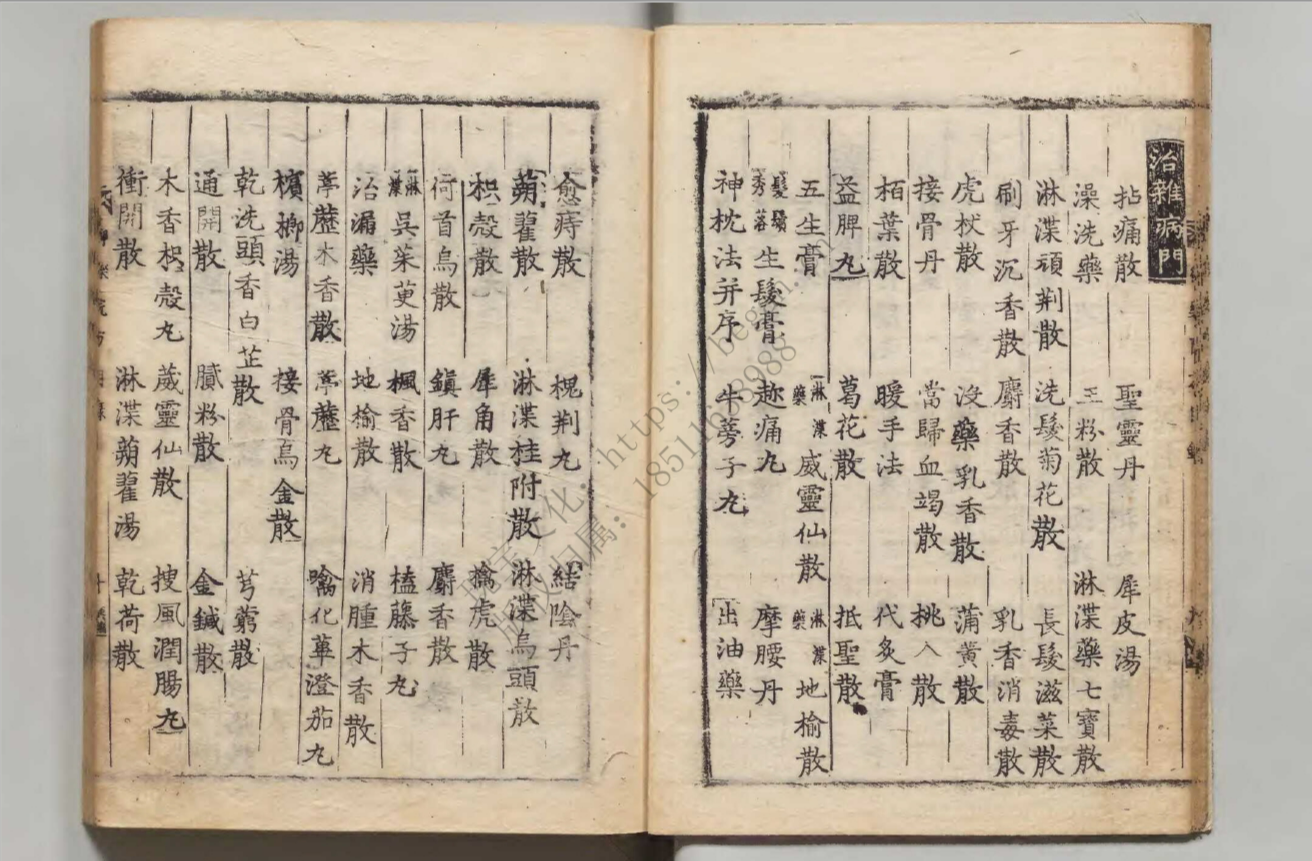 治雜病門
拈痛散 聖靈丹 犀皮湯
澡洗藥 玉粉散 淋渫藥七寶散
淋渫頑荆散 洗髮菊花散 長髮滋菜散
刷牙沉香散 麝香散 乳香消毒散
虎杖散 没藥乳香散 蒲黄散
接骨丹 當歸血竭散 挑入散
栢葉散 暖手法 代灸膏
益脾丸 葛花散 抵聖散
五生膏 淋渫藥威靈仙散 淋渫藥地榆散
髮鬚秀落生髮膏 趂痛丸 摩腰丹
神枕法并序 牛蒡子丸 出油藥
愈痔散 槐荆丸 結陰丹
蒴藋散 淋渫桂附散 淋渫烏頭散
枳殼散 犀角散 擒虎散
何首烏散 鎮肝丸 麝香散
淋渫吳茱萸湯 楓香散 榼藤子丸
治漏藥 地榆散 消腫木香散
葶藶木香散 葶藶丸 噙化蓽澄茄丸
檳榔湯 接骨烏金散
乾洗頭香白芷散 芎藭散
通開散 膩粉散 金鍼散
木香枳殼丸 葳靈仙散 搜風潤腸丸
衝開散 淋渫蒴藋湯 乾荷散